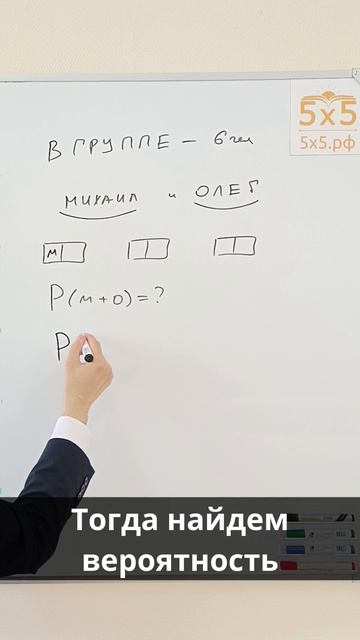 5х5
5х5.рф
В ГРУППЕ – 6 чел
МИХАИЛ и ОЛЕГ
М
Р(м+о)=?
Р
Тогда найдем
вероятность